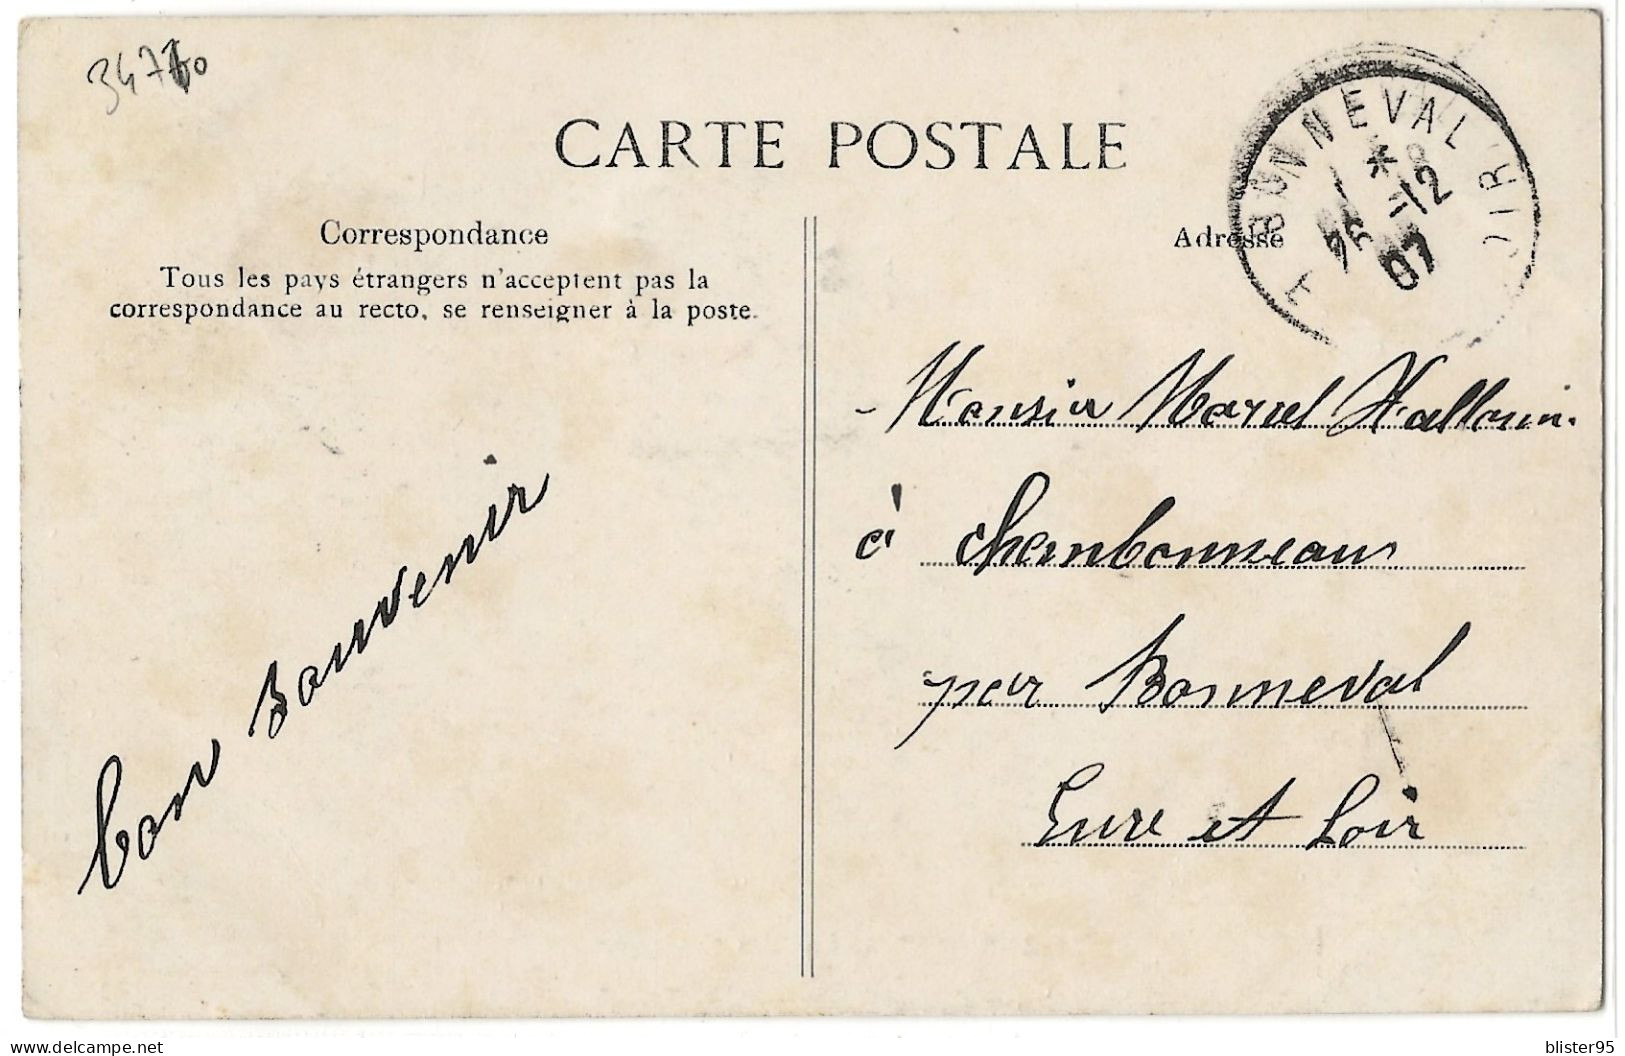 CARTE POSTALE
Correspondance
Tous les pays étrangers n'acceptent pas la
correspondance au recto, se renseigner à la poste.
Adresse
BONNEVAL
-12
07
Monsieur Marcel Hallouin.
à Chambonneau
par Bonneval
Eure et Loir
bon Souvenir
delcampe.net
blister95